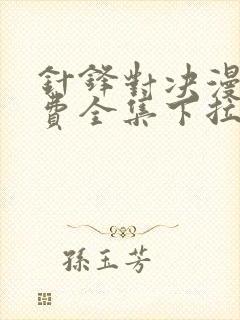 針鋒對決漫
費全集下拉
孫玉芳